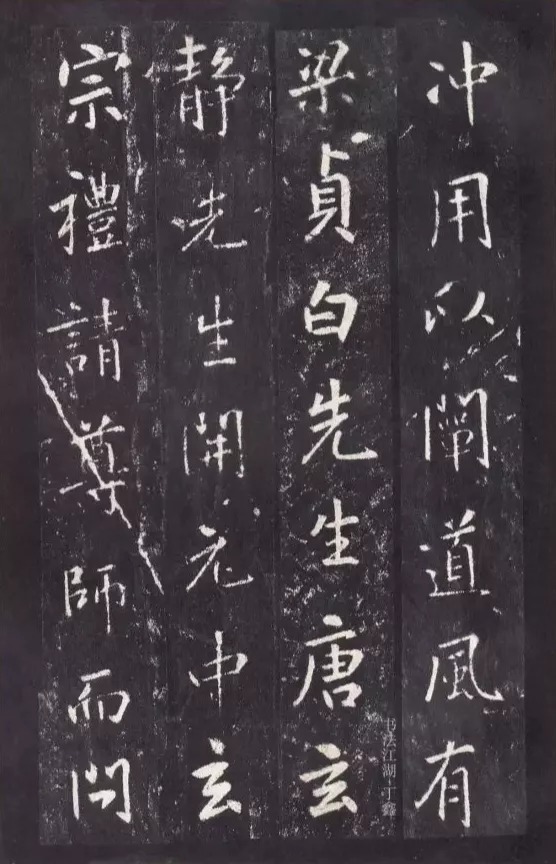 冲用以阐道風有
梁貞白先生唐玄
静先生開元中玄
宗禮請尊師而問
书法江湖·丁鑫